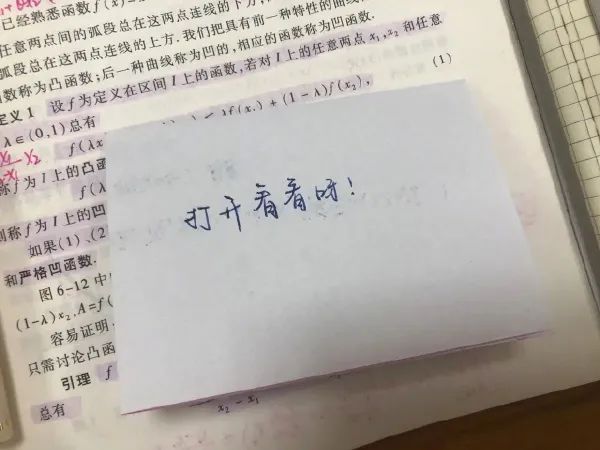 已经熟悉函数 f(x)=
任意两点间的弧段总在这两点连线的下方,
弧段总在这两点连线的上方.我们把具有前一种特性的曲线
函数称为凸函数;后一种曲线称为凹的,相应的函数称为凹函数.
定义1 设f为定义在区间I上的函数,若对I上的任意两点x₁,x₂和任意
λ∈(0,1)总有
f(λx
λf(x₁)+(1-λ)f(x₂), (1)
称f为I上的凸函
f(λ
则称f为I上的凹
如果(1)、(2
和严格凹函数.
图6-12中
(1-λ)x₂,A=f(
容易证明
只需讨论凸函
引理 f
总有
x₂-x₁
打开看看呀!